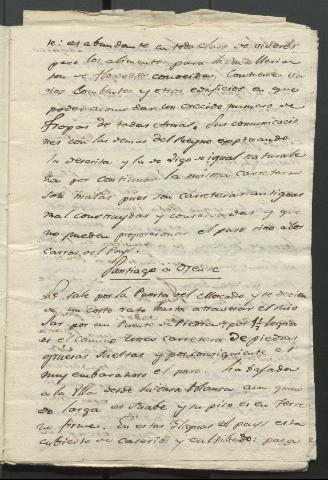 te: es abundante en toda clase de viveres
pero los alimentos para la Cavalleria
son de conocidas. Contiene va
rios Combentos y otros edificios en que
poder acomodar un crecido numero de
Tropas de todas Armas. Sus comunicacio
nes con las demas del Reyno exeptuando
la descrita y la de Vigo de igual naturale
za por continuar la misma carretera
son malas pues son carreteras antiguas
mal construydas y conservadas y que
no pueden proporcionar el paso sino a los
carros del Pays.
Santiago a Orense
Se sale por la Puerta del Mercado y se decien
de un corto rato hasta atravesar el Rio
Sar por un Puente de Piedra: por 1/2 legua
es el camino una carretera de piedras
gruesas sueltas y por consiguiente es
muy embarazoso el paso. La bajada
a la Ulla desde la Casa Blanca aun quan
do larga es suabe y su piso es en Terre
no firme. En estas 3 leguas el pays esta
cubierto de caserios y cultibado: pasa